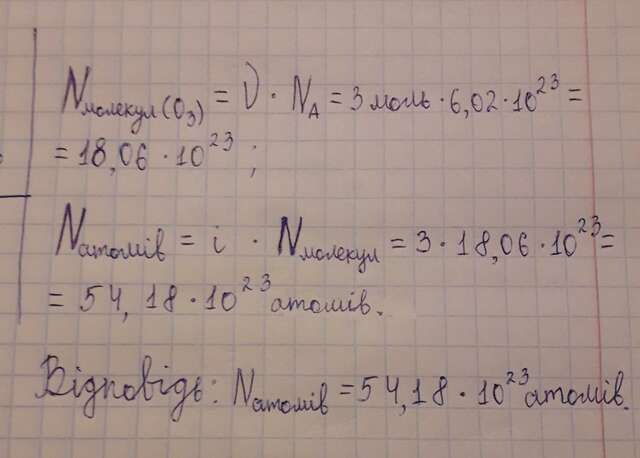 Nмолекул(O₃) = ν · Nₐ = 3 моль · 6,02 · 10²³ =
= 18,06 · 10²³ ;
Nатомів = i · Nмолекул = 3 · 18,06 · 10²³ =
= 54,18 · 10²³ атомів.
Відповідь: Nатомів = 54,18 · 10²³ атомів.